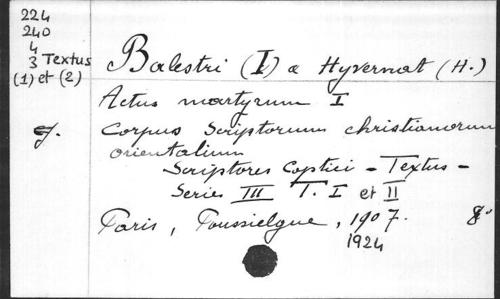 224
240
4
3 Textus
(1) et (2)
cf.
Balestri (I) a Hyvernat (H.)
Actus martyrum I
Corpus Scriptorum christianorum
orientalium
Scriptores Coptici - Textus -
Series III T. I et II
Paris, Poussielgue, 1907. 8°
1924